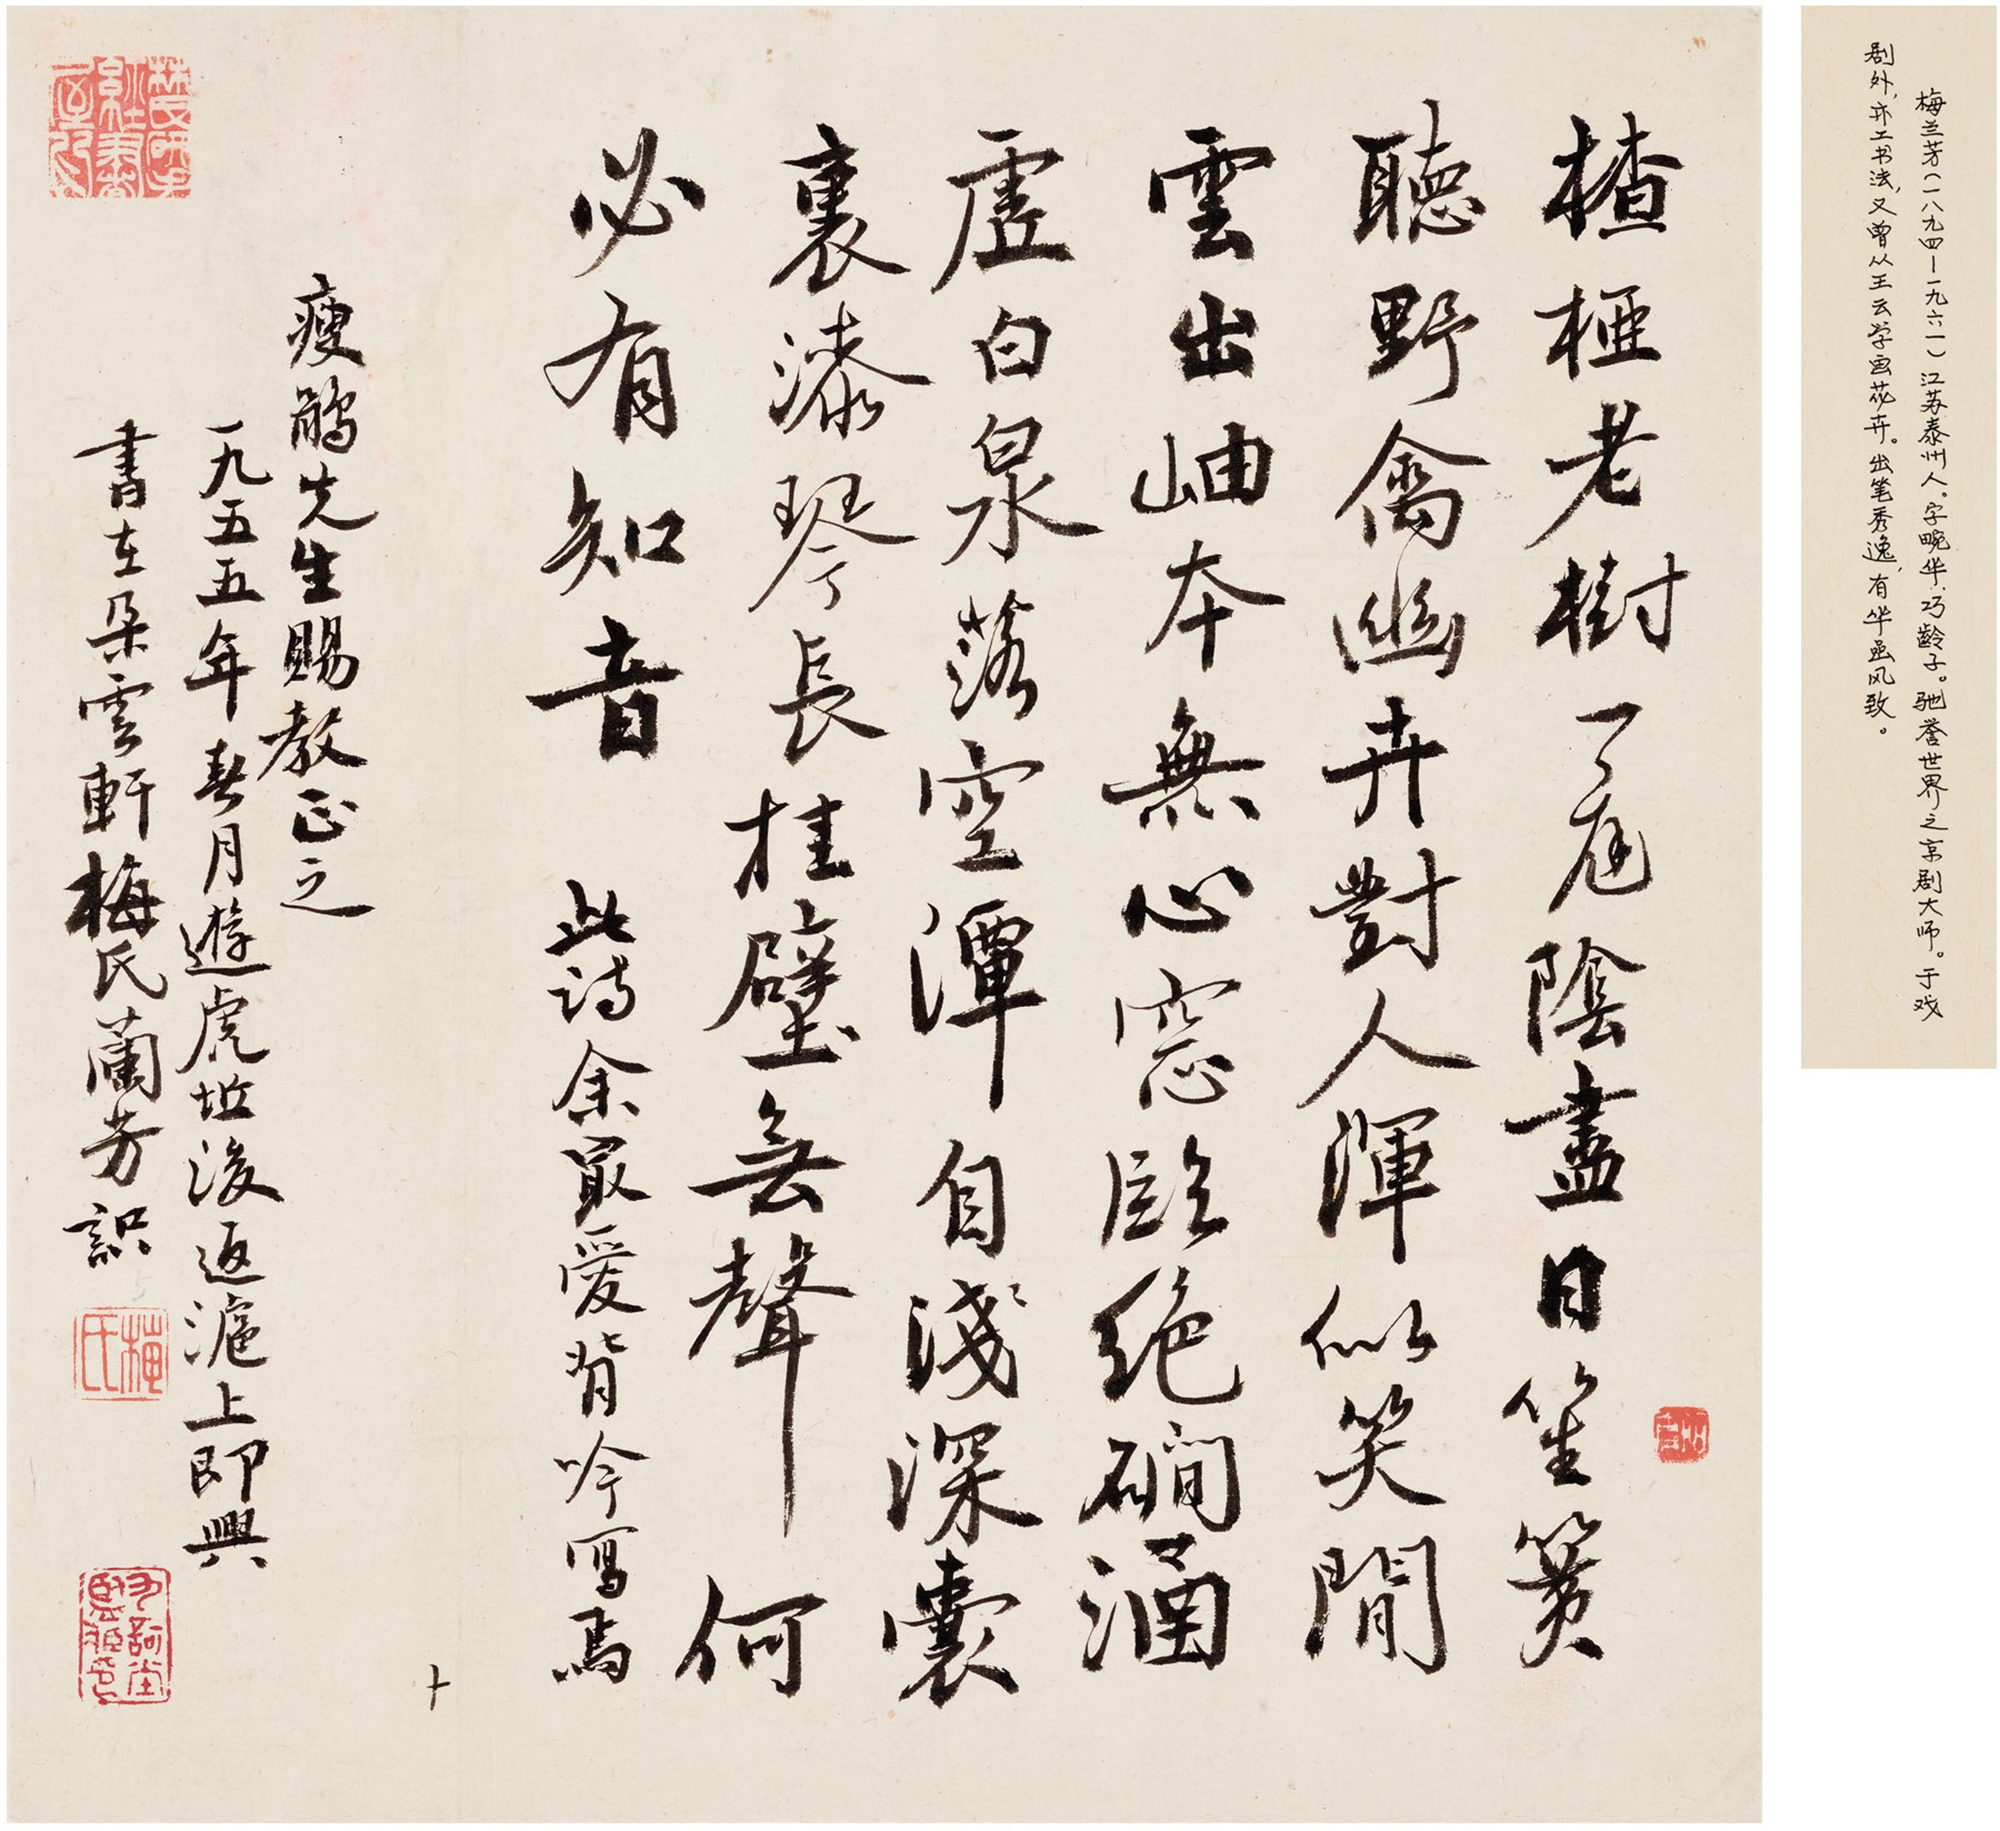 梅兰芳（一八九四—一九六一）江苏泰州人。字畹华，巧龄子。驰誉世界之京剧大师。于戏
剧外，亦工书法，又曾从王云学画花卉。出笔秀逸，有华嵒风致。
楂枒老樹一庭陰盡日笙簧
聽野禽幽卉對人渾似笑閒
雲出岫本無心窓臨絶磵涵
虛白泉落空潭自淺深囊
裏漆琴長挂壁無聲何
必有知音 此詩余最愛背吟寫焉
瘦鵑先生賜教正之
一九五五年春月遊虎丘後返滬上即興
書在朵雲軒梅氏蘭芳識
梅氏